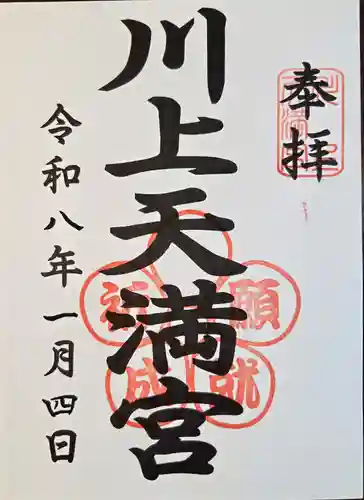 奉拝
川上天満宮
令和八年一月四日
願
就
成